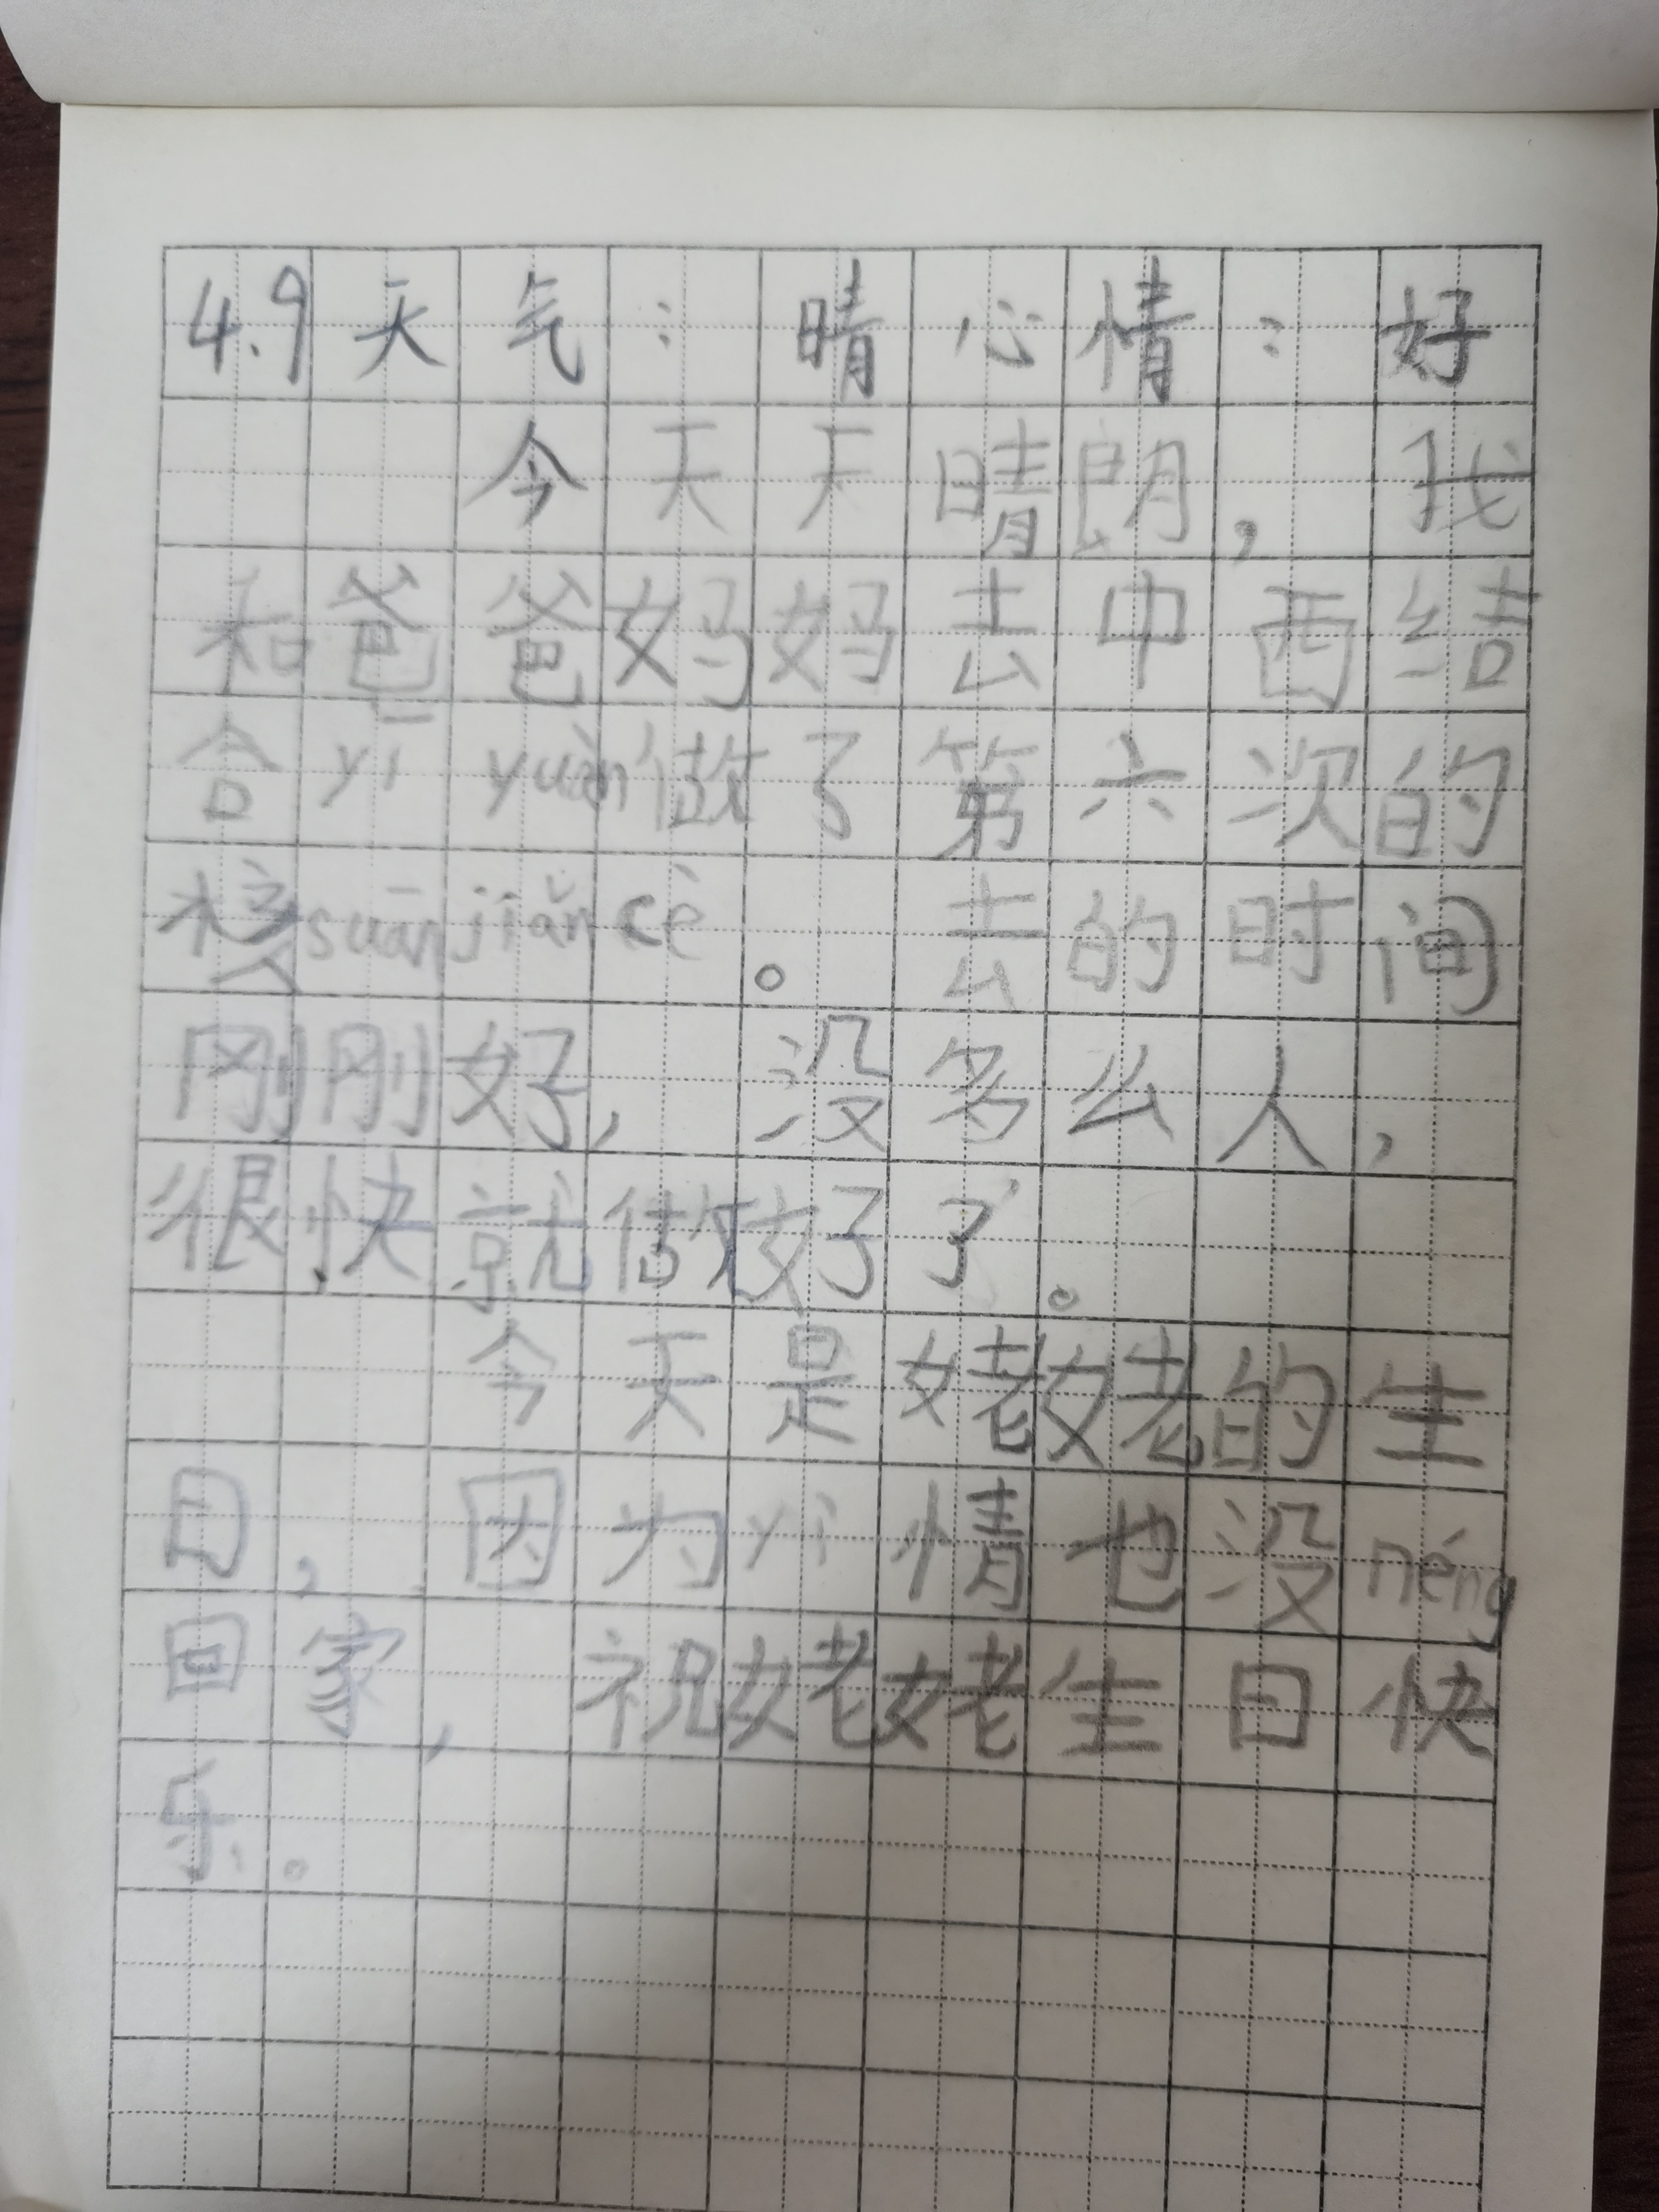 4.9天气：晴心情：好
今天天晴朗，我
和爸爸妈妈去中西结
合yī yuàn做了第六次的
核suānjiǎncè。去的时间
刚刚好，没多么人，
很快就做好了。
今天是姥姥的生
日，因为yì情也没néng
回家，祝姥姥生日快
乐。